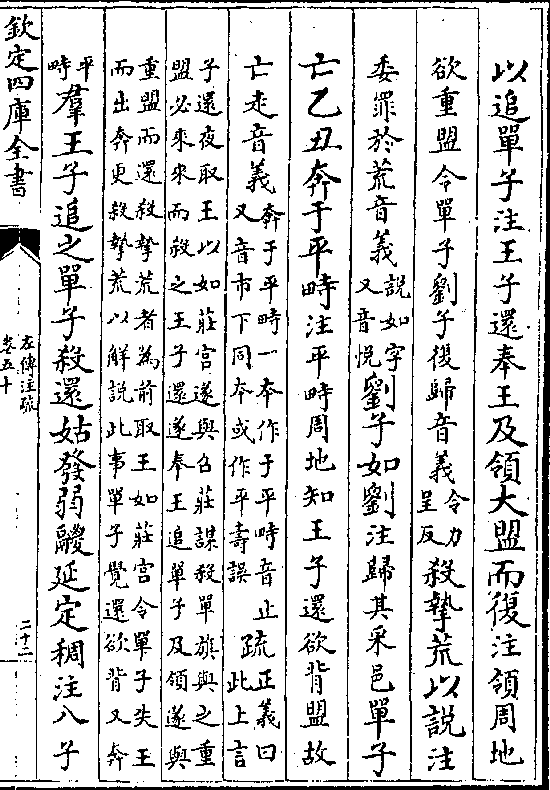 以追單子注王子還奉王及領大盟而復注領周地
欲重盟令單子劉子復歸音義令力呈反殺摯荒以說注
委罪於荒音義說如字又音悅劉子如劉注歸其采邑單子
亡乙丑奔于平畤注平畤周地知王子還欲背盟故
亡走音義奔于平畤一本作于平畤音止又音市下同本或作平壽誤疏正義曰此上言
子還夜取王以如莊宮遂與召莊謀殺單旗與之重
盟必來來而殺之王子還遂奉王追單子及領遂與
重盟而還殺摯荒者為前取王如莊宮令單子失王
而出奔更殺摯荒以解說此事單子覺還欲背又奔
平畤羣王子追之單子殺還姑發弱鬷延定稠注八子
欽定四庫全書
左傳注疏
卷五十
二十二